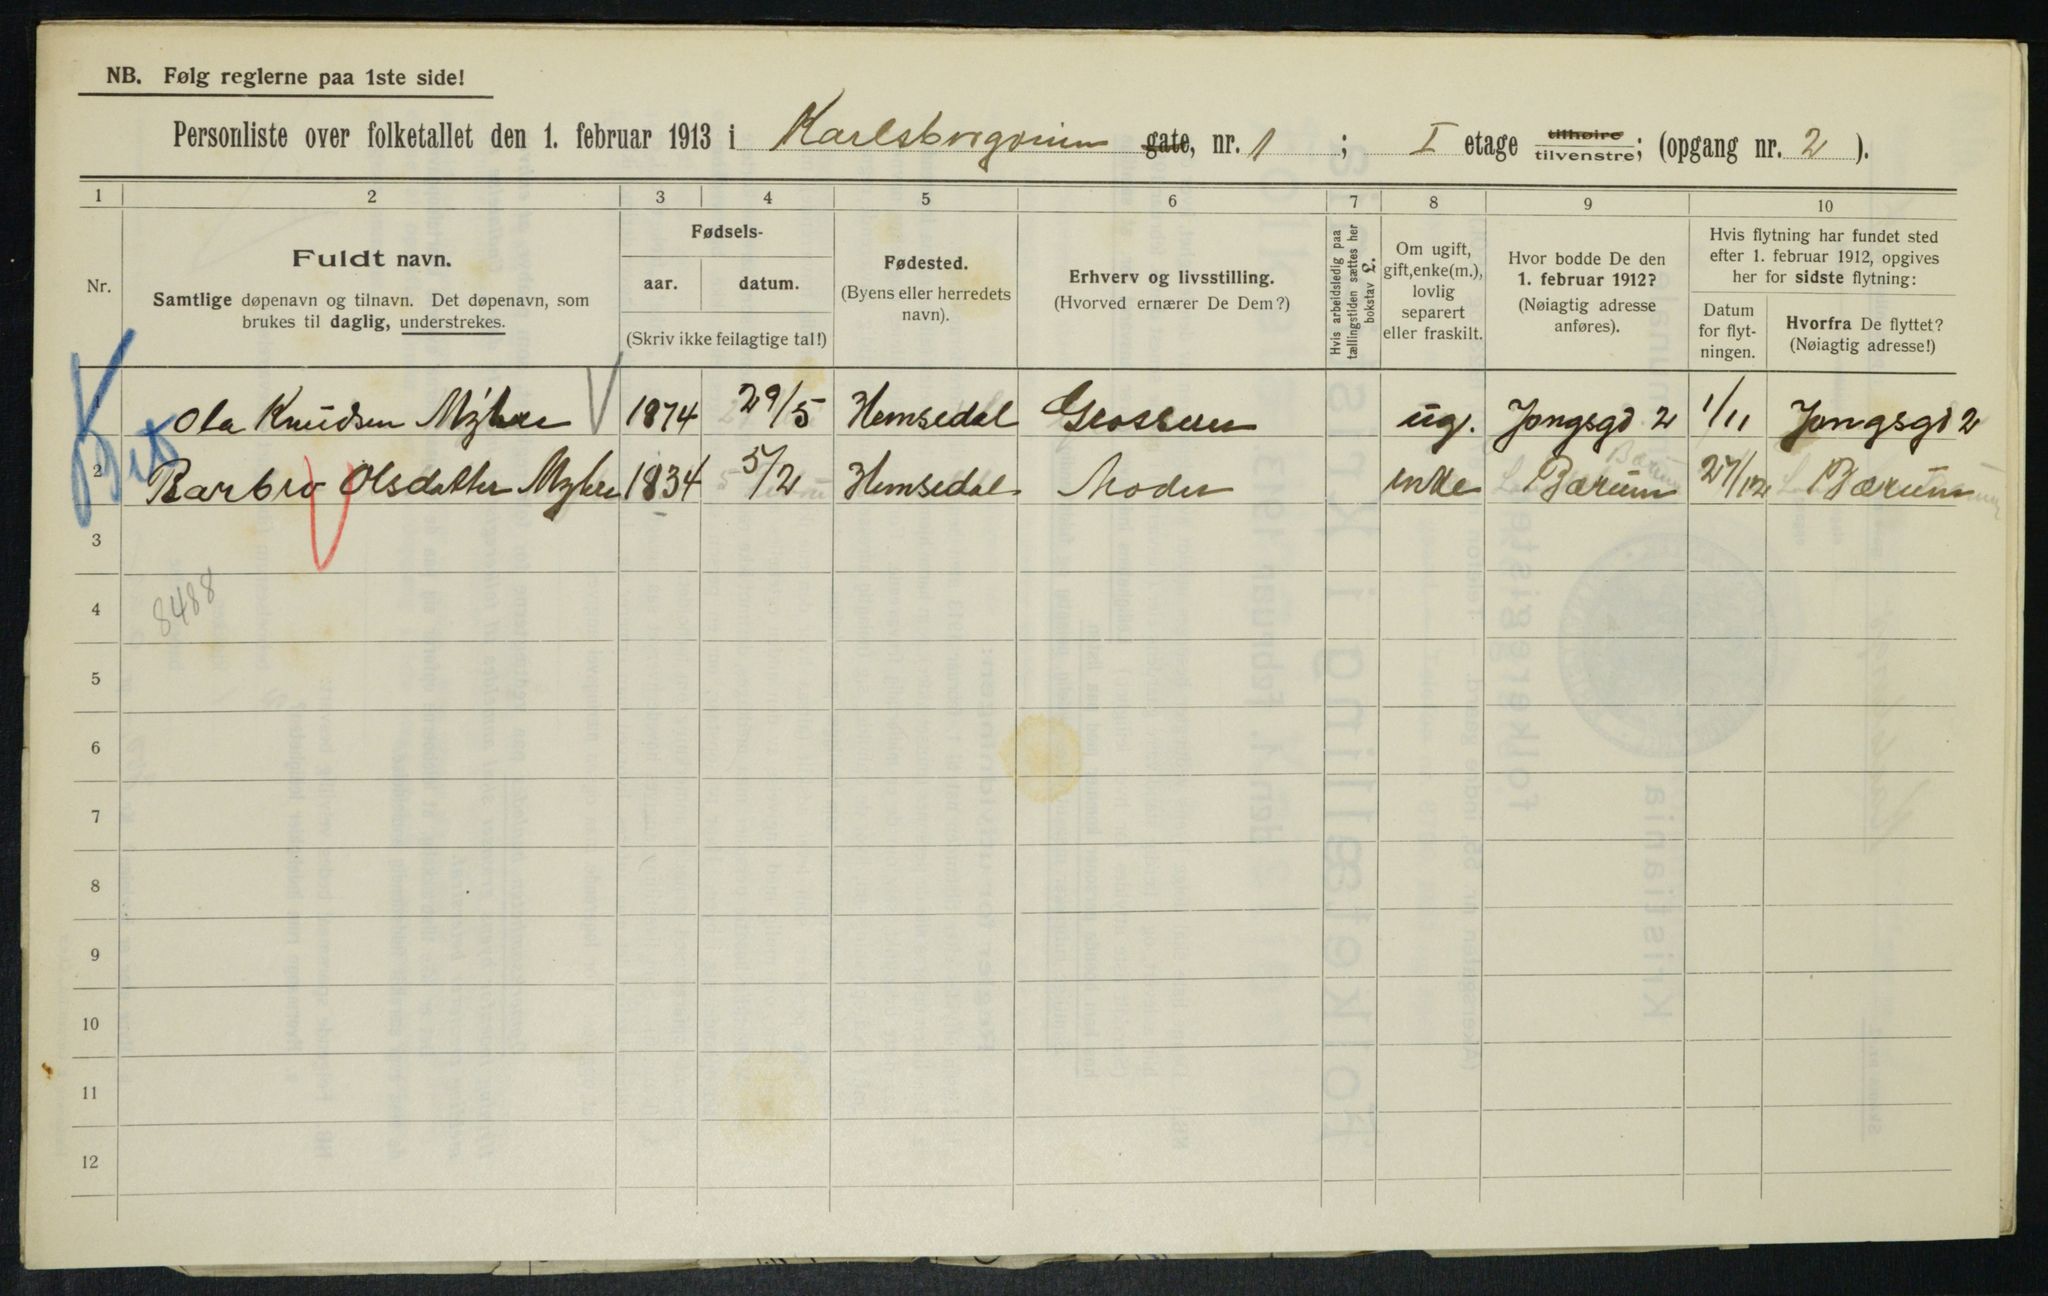 NB. Følg reglerne paa 1ste side!
Personliste over folketallet den 1. februar 1913 i Karlsborgveien gate, nr. 1 ; I etage tilhøire tilvenstre; (opgang nr. 2 ).
1 2 3 4 5 6 7 8 9 10
Nr.
Fuldt navn.
Samtlige døpenavn og tilnavn. Det døpenavn, som
brukes til daglig, understrekes.
Fødsels-
aar. datum.
(Skriv ikke feilagtige tal!)
Fødested.
(Byens eller herredets
navn).
Erhverv og livsstilling.
(Hvorved ernærer De Dem?)
Hvis arbeidsledig paa
tællingstiden sættes her
bokstav L.
Om ugift,
gift, enke(m.),
lovlig
separert
eller fraskilt.
Hvor bodde De den
1. februar 1912?
(Nøiagtig adresse
anføres).
Hvis flytning har fundet sted
efter 1. februar 1912, opgives
her for sidste flytning:
Datum
for flyt-
ningen.
Hvorfra De flyttet?
(Nøiagtig adresse!)
Ola Knudsen Myhre 1874 29/5 Hemsedal Grosserer ug. Jongsgd 2 1/11 Jongsgd 2
2 Barbro Olsdatter Myhre 1834 5/2 Hemsedal Moder enke Bærum 27/12 Bærum
3
8488
4
5
6
7
8
9
10
11
12